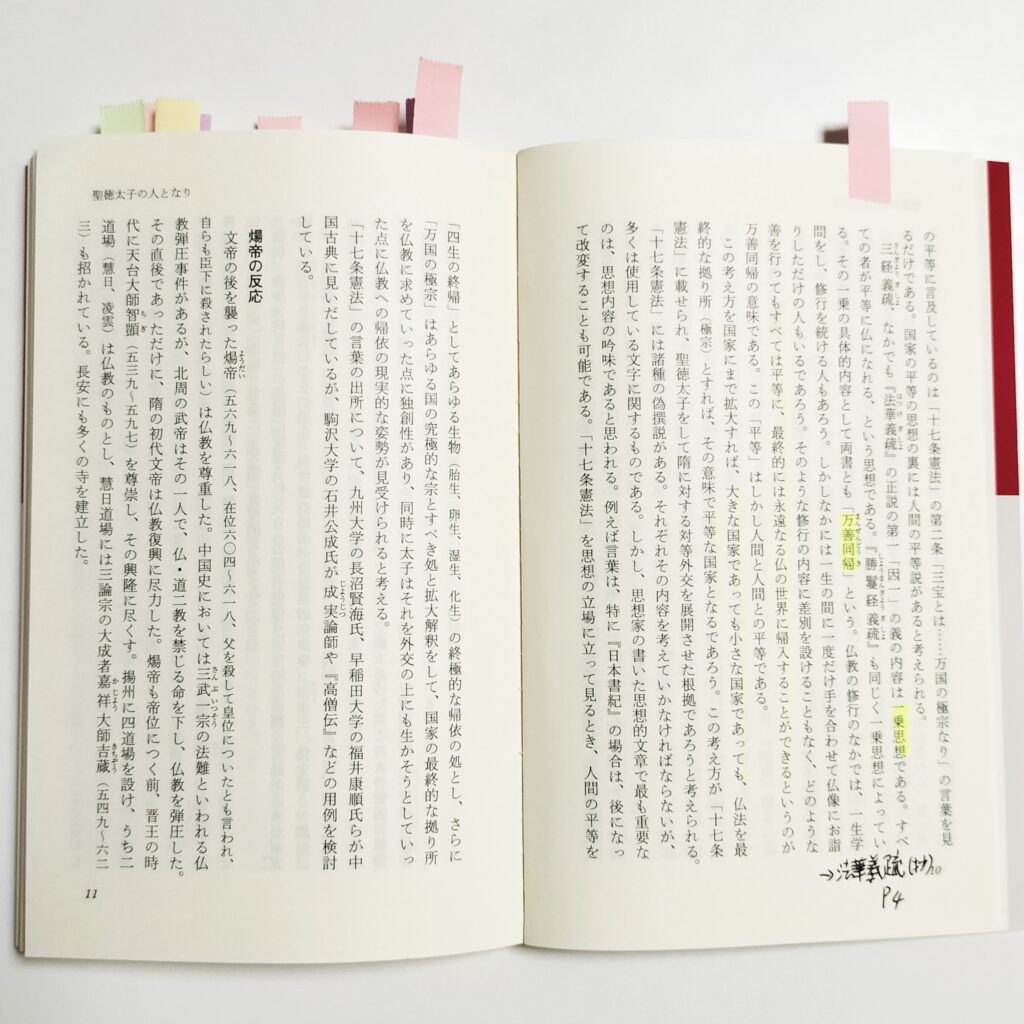 の平等に言及しているのは「十七条憲法」の第二条「三宝とは……万国の極宗なり」の言葉を見
るだけである。国家の平等の思想の裏には人間の平等説があると考えられる。
三経義疏、なかでも『法華義疏』の正説の第一「因一」の義の内容は一乗思想である。すべ
ての者が平等に仏になれる、という思想である。『勝鬘経義疏』も同じく一乗思想によってい
る。その一乗の具体的内容として両書とも「万善同帰」という。仏教の修行のなかでは、一生学
問をし、修行を続ける人もあろう。しかしなかには一生の間に一度だけ手を合わせて仏像にお詣
りしただけの人もいるであろう。そのような修行の内容に差別を設けることもなく、どのような
善を行ってもすべては平等に、最終的には永遠なる仏の世界に帰入することができるというのが
万善同帰の意味である。この「平等」はしかし人間と人間との平等である。
この考え方を国家にまで拡大すれば、大きな国家であっても小さな国家であっても、仏法を最
終的な拠り所（極宗）とすれば、その意味で平等な国家となるであろう。この考え方が「十七条
憲法」に載せられ、聖徳太子をして隋に対する対等外交を展開させた根拠であろうと考えられる。
「十七条憲法」には諸種の偽撰説がある。それぞれその内容を考えていかなければならないが、
多くは使用している文字に関するものである。しかし、思想家の書いた思想的文章で最も重要な
のは、思想内容の吟味であると思われる。例えば言葉は、特に『日本書紀』の場合は、後になっ
て改変することも可能である。「十七条憲法」を思想の立場に立って見るとき、人間の平等を
10
→法華義疏(抄)
P4
聖徳太子の人となり
「四生の終帰」としてあらゆる生物（胎生、卵生、湿生、化生）の終極的な帰依の処とし、さらに
「万国の極宗」はあらゆる国の究極的な宗とすべき処と拡大解釈をして、国家の最終的な拠り所
を仏教に求めていった点に独創性があり、同時に太子はそれを外交の上にも生かそうとしていっ
た点に仏教への帰依の現実的な姿勢が見受けられると考える。
「十七条憲法」の言葉の出所について、九州大学の長沼賢海氏、早稲田大学の福井康順氏らが中
国古典に見いだしているが、駒沢大学の石井公成氏が成実論師や『高僧伝』などの用例を検討
している。
煬帝の反応
文帝の後を襲った煬帝（五六九～六一八、在位六〇四～六一八、父を殺して皇位についたとも言われ、
自らも臣下に殺されたらしい）は仏教を尊重した。中国史においては三武一宗の法難といわれる仏
教弾圧事件があるが、北周の武帝はその一人で、仏・道二教を禁じる命を下し、仏教を弾圧した。
その直後であっただけに、隋の初代文帝は仏教復興に尽力した。煬帝も帝位につく前、晋王の時
代に天台大師智顗（五三九～五九七）を尊崇し、その興隆に尽くす。揚州に四道場を設け、うち二
道場（慧日、凌雲）は仏教のものとし、慧日道場には三論宗の大成者嘉祥大師吉蔵（五四九～六二
三）も招かれている。長安にも多くの寺を建立した。
11